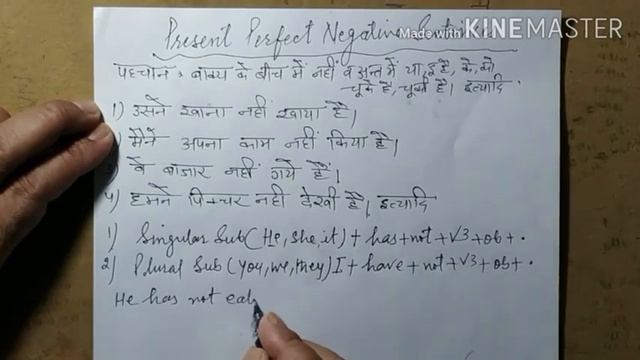 Present Perfect Negative
Made with KINEMASTER
पहचान: वाक्य के बीच में नहीं व अन्त में या, है, के,
चुके है, चुकी है। इत्यादि
1) उसने खाना नहीं खाया है।
मैने अपना काम नहीं किया है।
वे बाजार नहीं गये हैं।
4) हमने पिक्चर नही देखी है। इत्यादि
1) Singular Sub (He, She, it) + has + not + V3 + ob + .
2) Plural Sub (You, we, they) I + have + not + V3 + ob + .
He has not eat